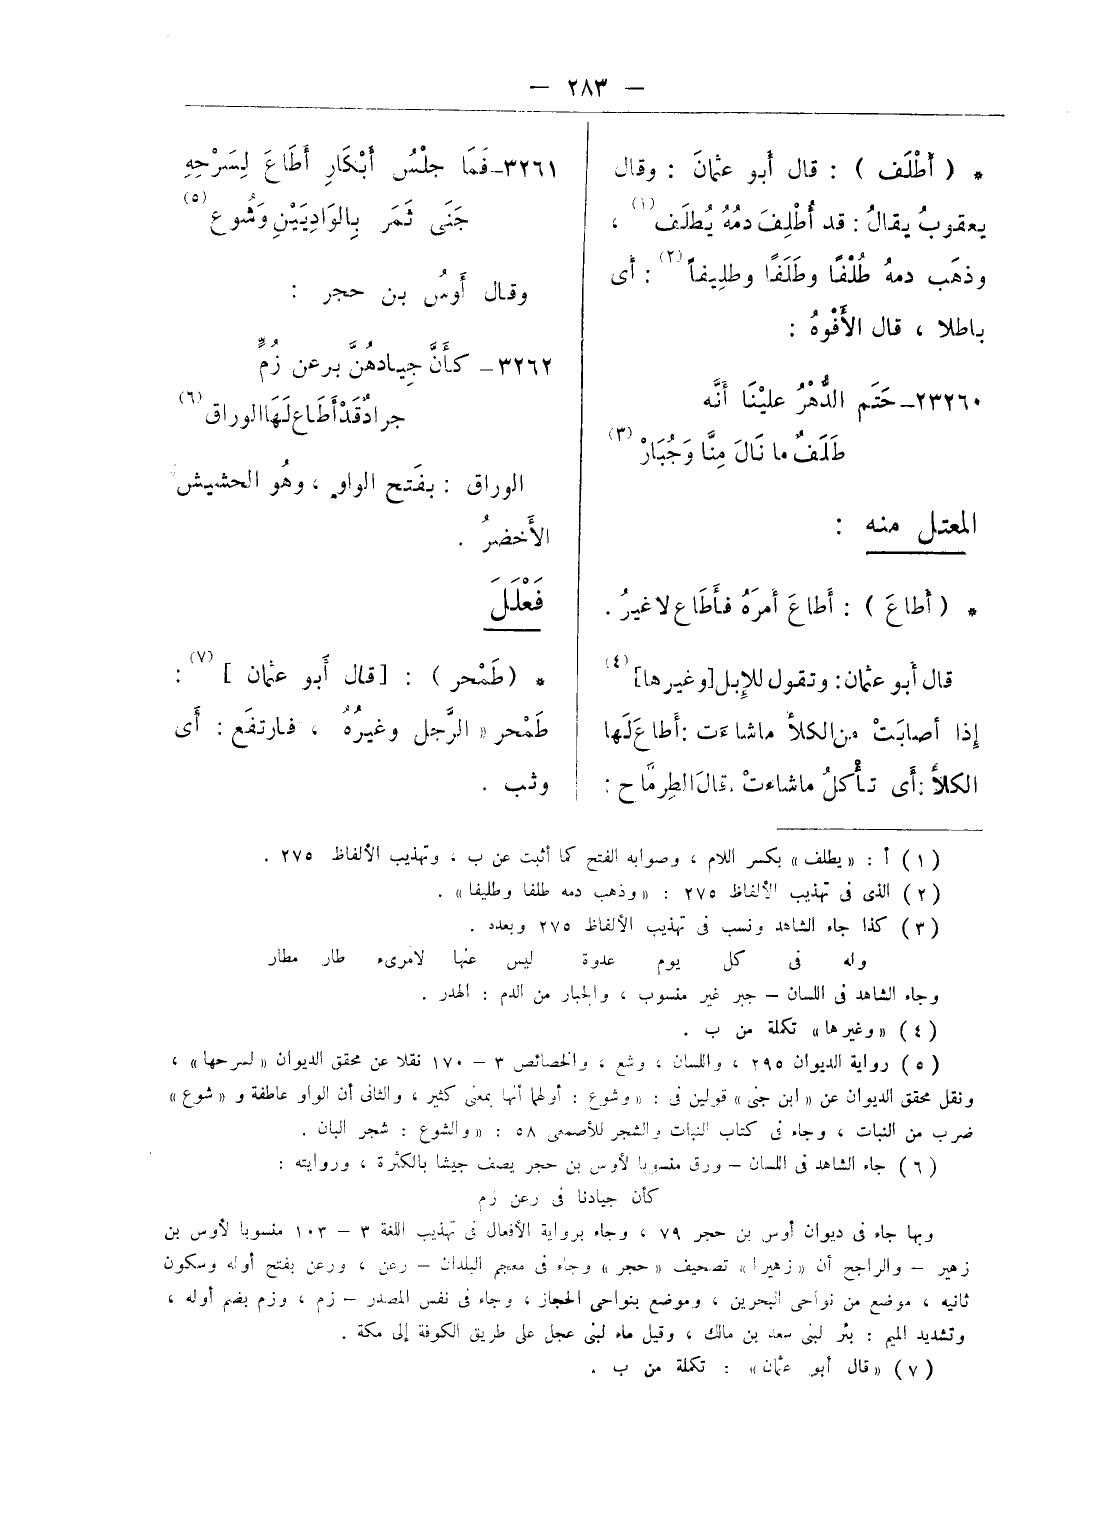 — ٢٨٣ —
* ( أَطْلَف ) : قال أَبو عثمانَ : وقال
يعقوبُ يقالُ : قد أُطْلِفَ دمُهُ يُطلَف (١) ،
وذهَب دمهُ طُلْفًا وطَلَفًا وطلِيفاً (٢) : أَى
باطلا ، قال الأَفْوهُ :
٢٣٢٦٠ـ حَتَم الدَّهْرُ عليْنَا أَنَّه
طَلَفٌ ما نَالَ مِنَّا وَجُبَارْ (٣)
المعتل منه :
* ( أَطاعَ ) : أَطاعَ أَمرَهُ فأَطَاع لاغيرُ .
قال أَبو عثمان : وتقول للإِبل [وغيرها] (٤)
إِذا أَصابَتْ من الكلأ ماشاءَت : أَطاعَ لَها
الكلأُ : أَى تأْكلُ ماشاءتْ . قالَ الطِرمَّاح :
٣٢٦١ـ فَمَا جلْسُ أَبْكَارٍ أَطَاعَ لِسَرْحِهِ
جَنَى ثَمَر بِالوَادِيَيْنِ وَشُوع (٥)
وقال أَوسُ بن حجر :
٣٢٦٢ـ كأَنَّ جِيادهُنَّ برعن زُمٍّ
جرادٌ قَدْ أَطَاع لَهَا الوراق (٦)
الوراق : بفَتح الواو ، وهُو الحشيش
الأَخضرُ .
فَعْلَلَ
* (طَمْحر) : [قال أَبو عثمان ] (٧) :
طَمْحر الرَّجل وغيرُهُ ، فارتفَع : أَى
وثب .
(١) أ : « يطلف » بكسر اللام ، وصوابه الفتح كما أثبت عن ب ، وتهذيب الألفاظ ٢٧٥ .
(٢) الذى فى تهذيب الألفاظ ٢٧٥ : « وذهب دمه طلفا وطليفا » .
(٣) كذا جاء الشاهد ونسب فى تهذيب الألفاظ ٢٧٥ وبعده .
وله فى كل يوم عدوة ليس عنها لامرىء طار مطار
وجاء الشاهد فى اللسان – جبر غير منسوب ، والجبار من الدم : الهدر .
(٤) « وغيرها » تكملة من ب .
(٥) رواية الديوان ٢٩٥ ، واللسان ، وشع ، والخصائص ٣ – ١٧٠ نقلا عن محقق الديوان « لسرحها » ،
ونقل محقق الديوان عن « ابن جنى » قولين فى : « وشوع : أولهما أنها بمعنى كثير ، والثانى أن الواو عاطفة و « شوع »
ضرب من النبات ، وجاء فى كتاب النبات والشجر للأصمعى ٥٨ : « والشوع : شجر البان .
(٦) جاء الشاهد فى اللسان – ورق منسوبا لأوس بن حجر يصف جيشا بالكثرة ، وروايته :
كأن جيادنا فى رعن زم
وبها جاء فى ديوان أوس بن حجر ٧٩ ، وجاء برواية الأفعال فى تهذيب اللغة ٣ – ١٠٣ منسوبا لأوس بن
زهير – والراجح أن « زهيرا » تصحيف « حجر » وجاء فى معجم البلدان – رعن ، ورعن بفتح أوله وسكون
ثانيه ، موضع من نواحى البحرين ، وموضع بنواحى الحجاز ، وجاء فى نفس المصدر – زم ، وزم بضم أوله ،
وتشديد الميم : بئر لبنى سعد بن مالك ، وقيل ماء لبنى عجل على طريق الكوفة إلى مكة .
(٧) « قال أبو عثمان » : تكملة من ب .